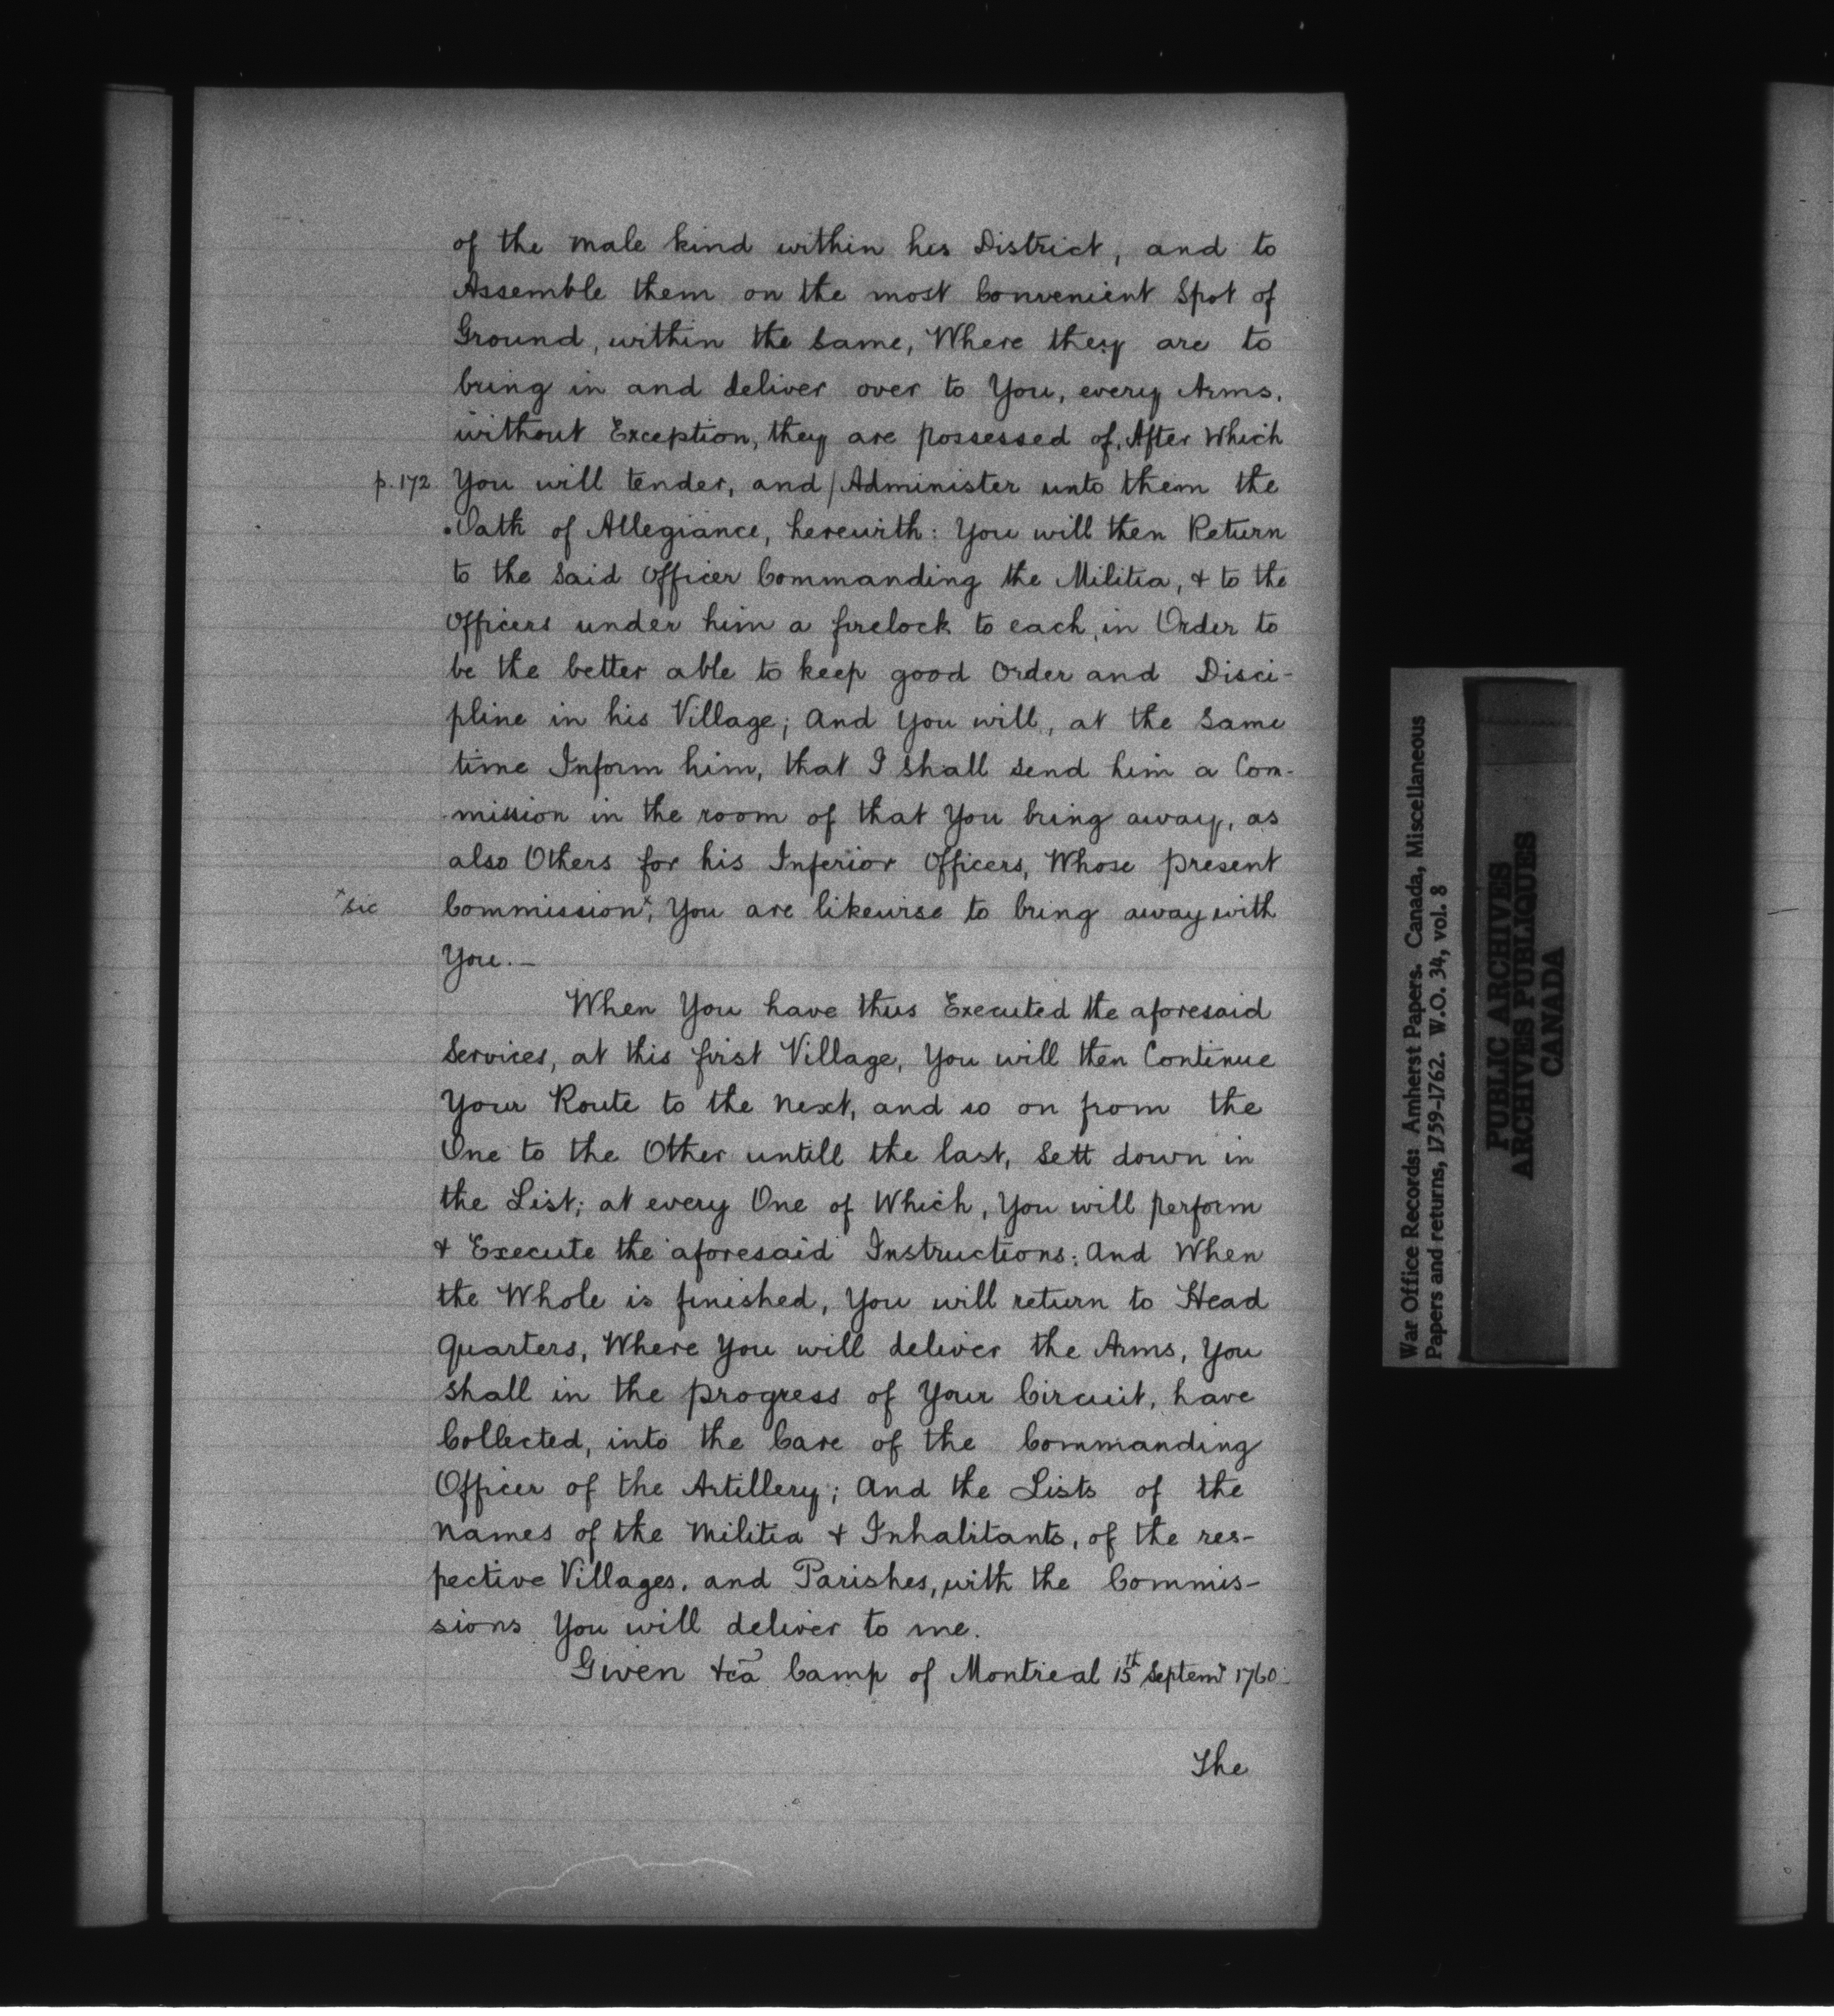 of the male kind within his District, and to
Assemble them on the most Convenient Spot of
Ground, within the same, Where they are to
bring in and deliver over to You, every Arms,
without Exception, they are possessed of, After Which
p.172 You will tender, and / Administer unto them the
Oath of Allegiance, herewith: You will then Return
to the Said Officer Commanding the Militia, & to the
Officers under him a firelock to each, in Order to
be the better able to keep good Order and Disci-
pline in his Village; And You will, at the Same
time Inform him, that I Shall Send him a Com-
mission in the room of that You bring away, as
also Others for his Inferior Officers, Whose present
x sic Commission x, You are likewise to bring away with
You.—
When You have thus Executed the aforesaid
Services, at this first Village, You will then Continue
Your Route to the next, and so on from the
One to the Other untill the last, Sett down in
the List; at every One of Which, You will perform
& Execute the aforesaid Instructions: And When
the Whole is finished, You will return to Head
Quarters, Where You will deliver the Arms, You
Shall in the progress of Your Circuit, have
Collected, into the Care of the Commanding
Officer of the Artillery; And the Lists of the
Names of the Militia & Inhabitants, of the res-
pective Villages, and Parishes, with the Commis-
sions You will deliver to me.
Given &ca Camp of Montreal 15th Septemr 1760.
The
War Office Records: Amherst Papers. Canada, Miscellaneous
Papers and returns, 1759-1762. W.O. 34, vol. 8
PUBLIC ARCHIVES
ARCHIVES PUBLIQUES
CANADA